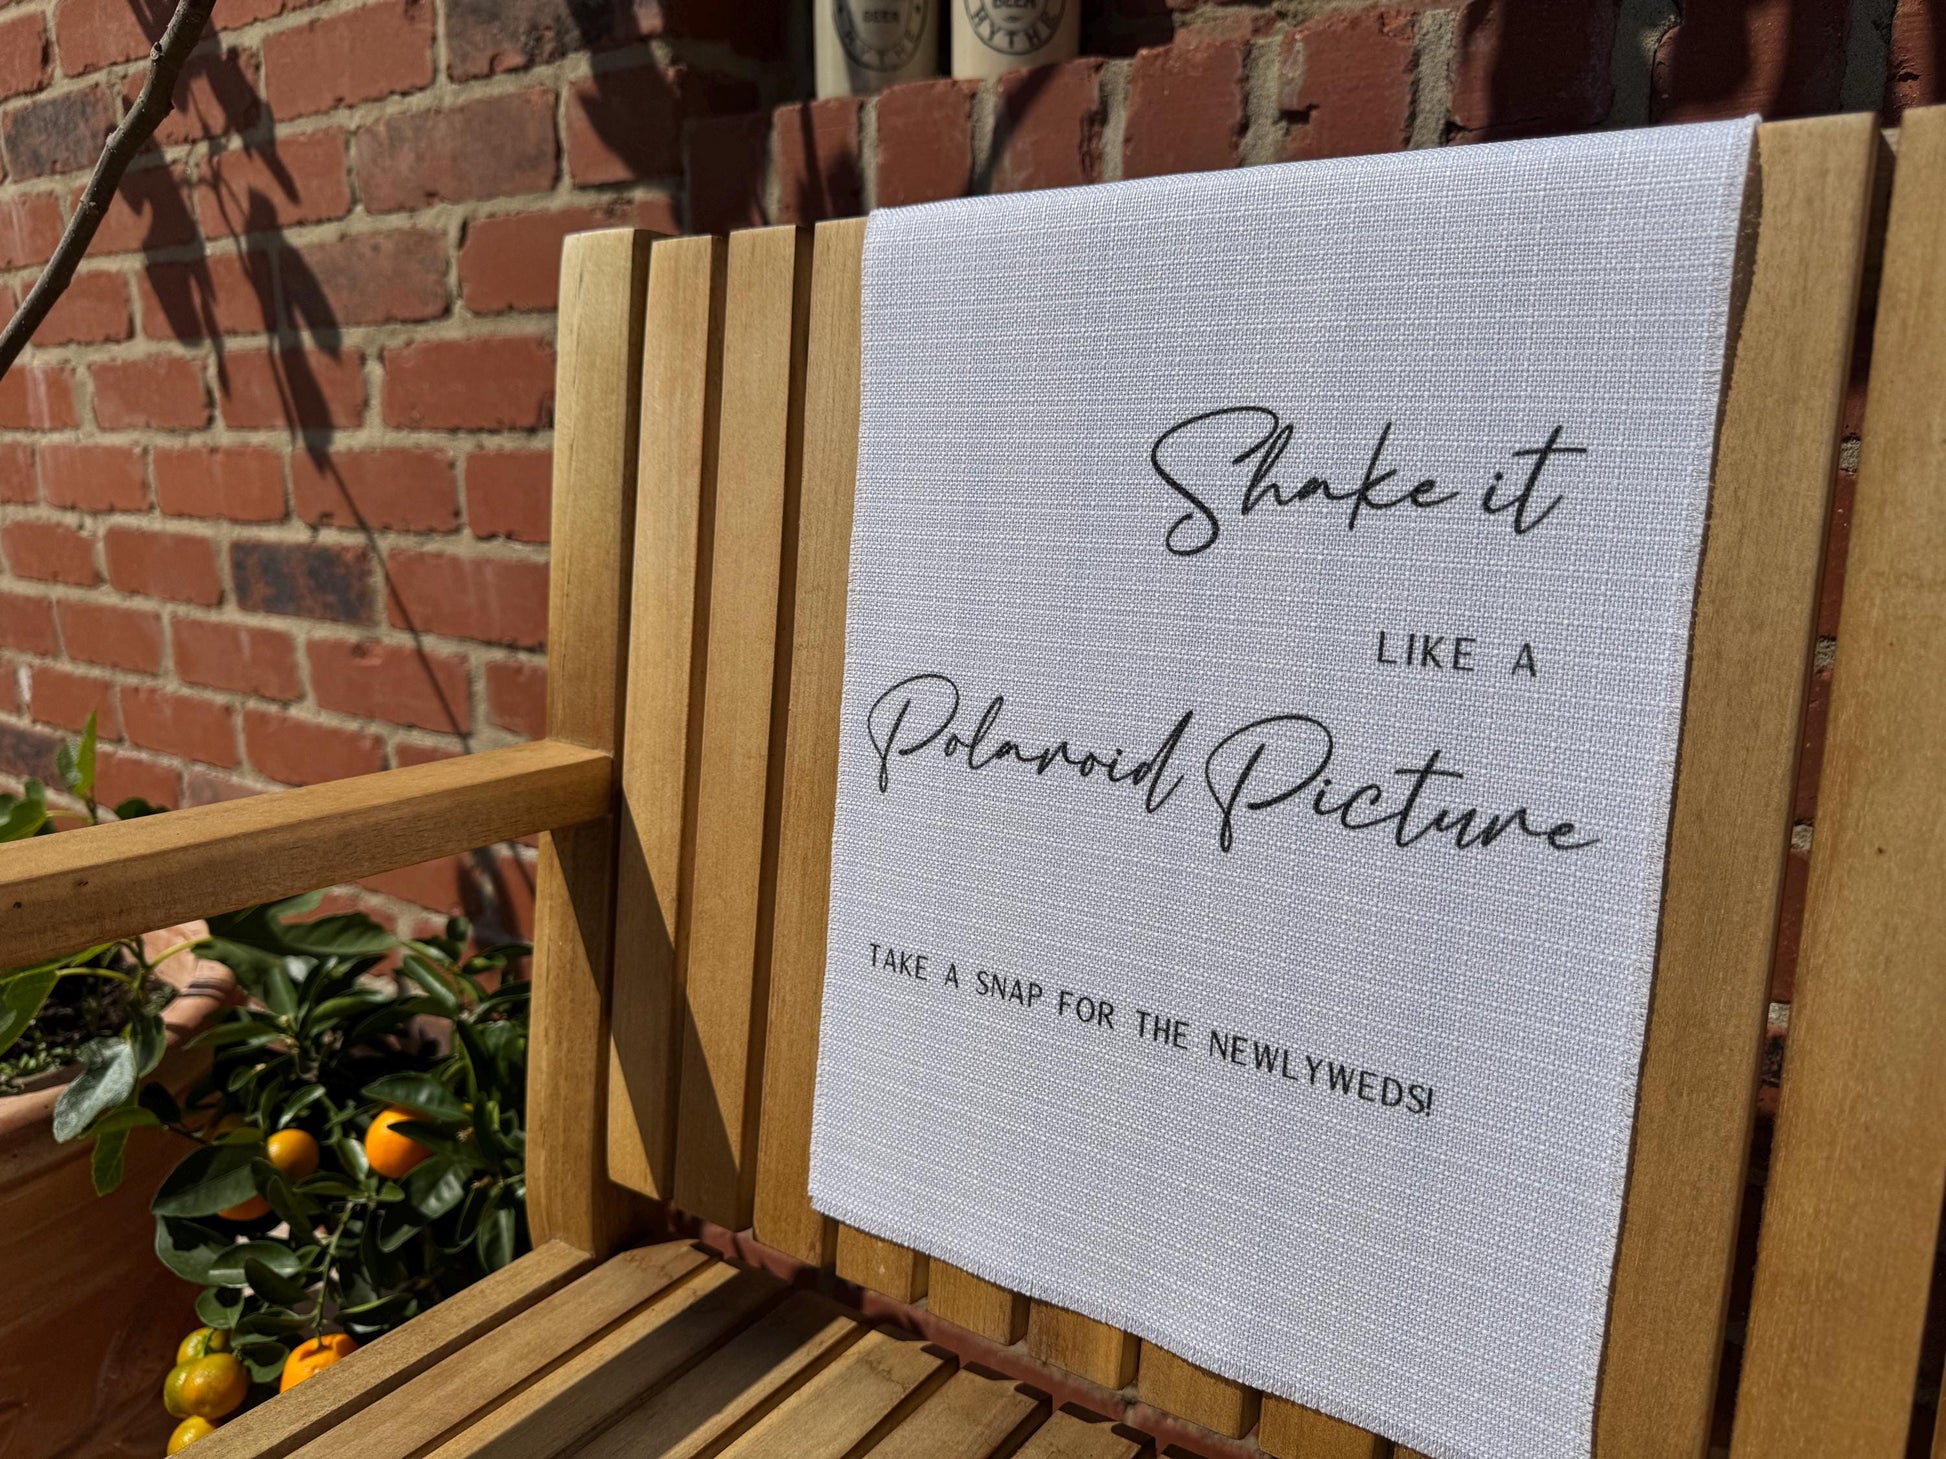 BEER
BEER
HYTHE
Shake it
LIKE A
Polaroid Picture
TAKE A SNAP FOR THE NEWLYWEDS!